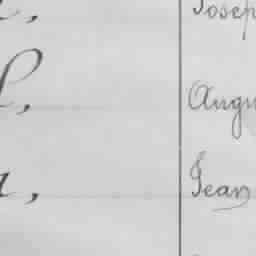 Josep
l, Augu
, Jean